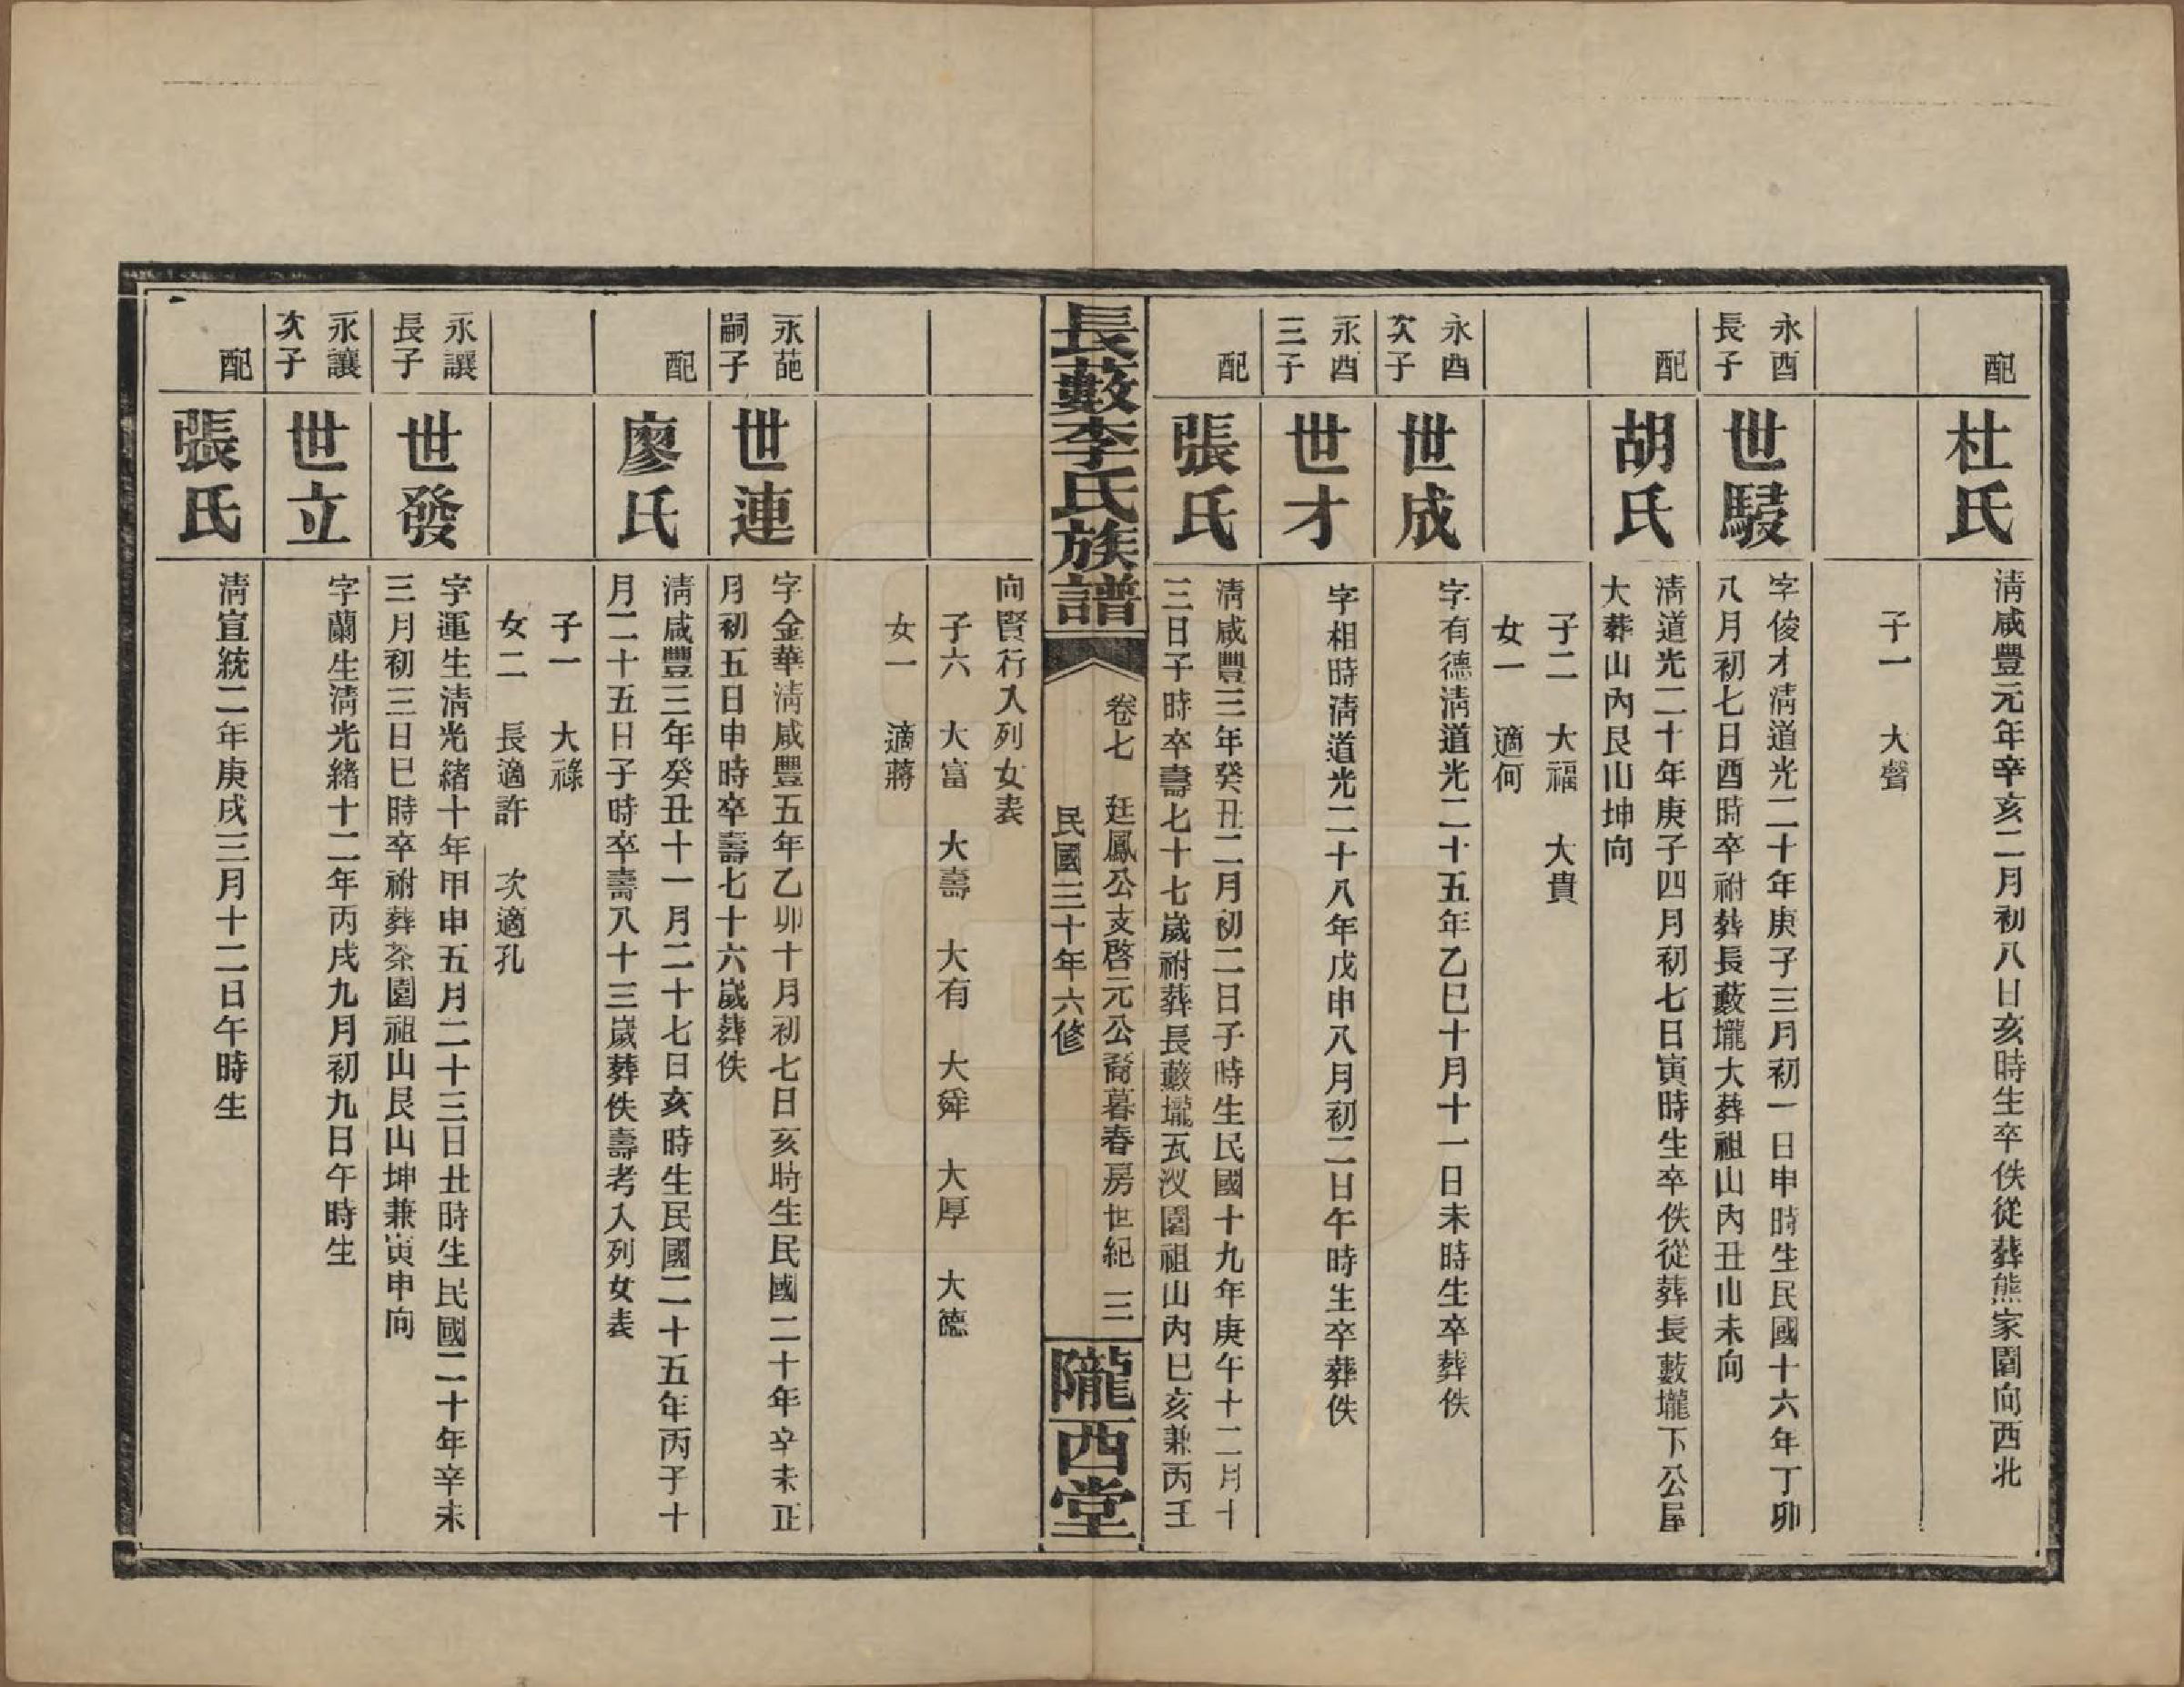 配
杜氏
淸咸豐元年辛亥二月初八日亥時生卒佚從葬熊家園向西北
子一　大聲
永酉
長子
世駸
字俊才淸道光二十年庚子三月初一日申時生民國十六年丁卯
八月初七日酉時卒祔葬長藪壠大葬祖山內丑山未向
配
胡氏
淸道光二十年庚子四月初七日寅時生卒佚從葬長藪壠下公屋
大葬山內艮山坤向
子二　大福　大貴
女一　適何
永酉
次子
世成
字有德淸道光二十五年乙巳十月十一日未時生卒葬佚
永酉
三子
世才
字相時淸道光二十八年戊申八月初二日午時生卒葬佚
配
張氏
淸咸豐三年癸丑二月初二日子時生民國十九年庚午十二月十
三日子時卒壽七十七歲祔葬長藪壠瓦汊園祖山內巳亥兼丙壬
長藪李氏族譜
卷七　廷鳳公支啓元公裔暮春房世紀　三
民國三十年六修
隴西堂
向賢行入列女表
子六　大富　大壽　大有　大舜　大厚　大德
女一　適蔣
永葩
嗣子
世連
字金華淸咸豐五年乙卯十月初七日亥時生民國二十年辛未正
月初五日申時卒壽七十六歲葬佚
配
廖氏
淸咸豐三年癸丑十一月二十七日亥時生民國二十五年丙子十
月二十五日子時卒壽八十三歲葬佚壽考入列女表
子一　大祿
女二　長適許　次適孔
永讓
長子
世發
字運生淸光緖十年甲申五月二十三日丑時生民國二十年辛未
三月初三日巳時卒祔葬茶園祖山艮山坤兼寅申向
永讓
次子
世立
字蘭生淸光緖十二年丙戌九月初九日午時生
配
張氏
淸宣統二年庚戌三月十二日午時生